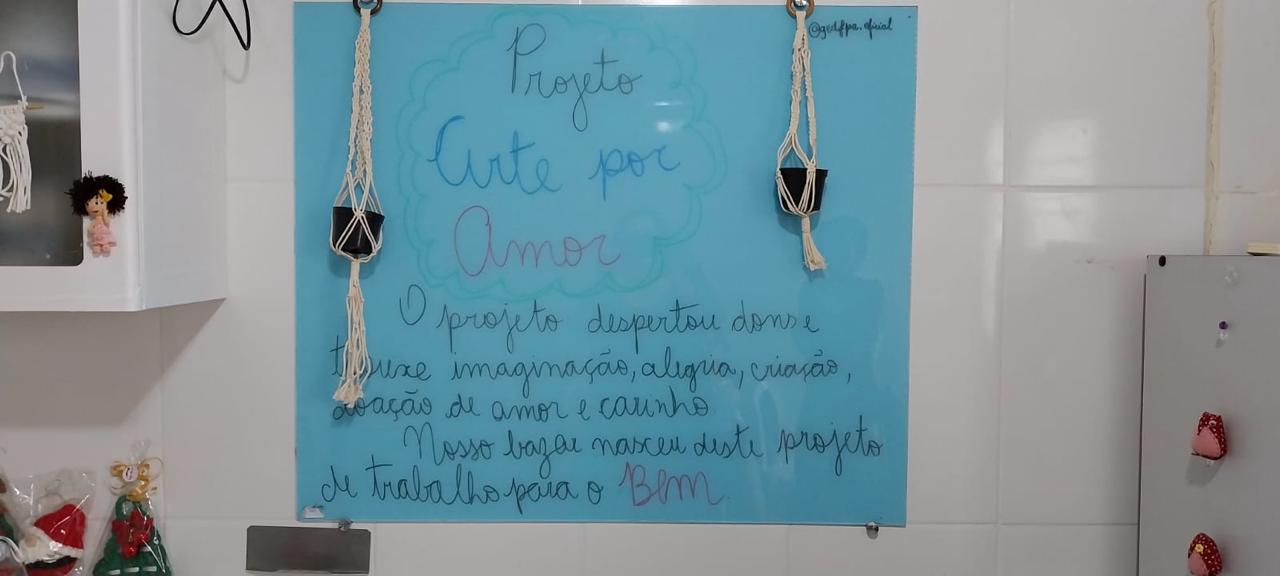 @gedfpa.oficial
Projeto
Arte por
Amor
O projeto despertou dons e
trouxe imaginação, alegria, criação,
doação de amor e carinho
Nosso bazar nasceu deste projeto
de trabalho para o Bem.